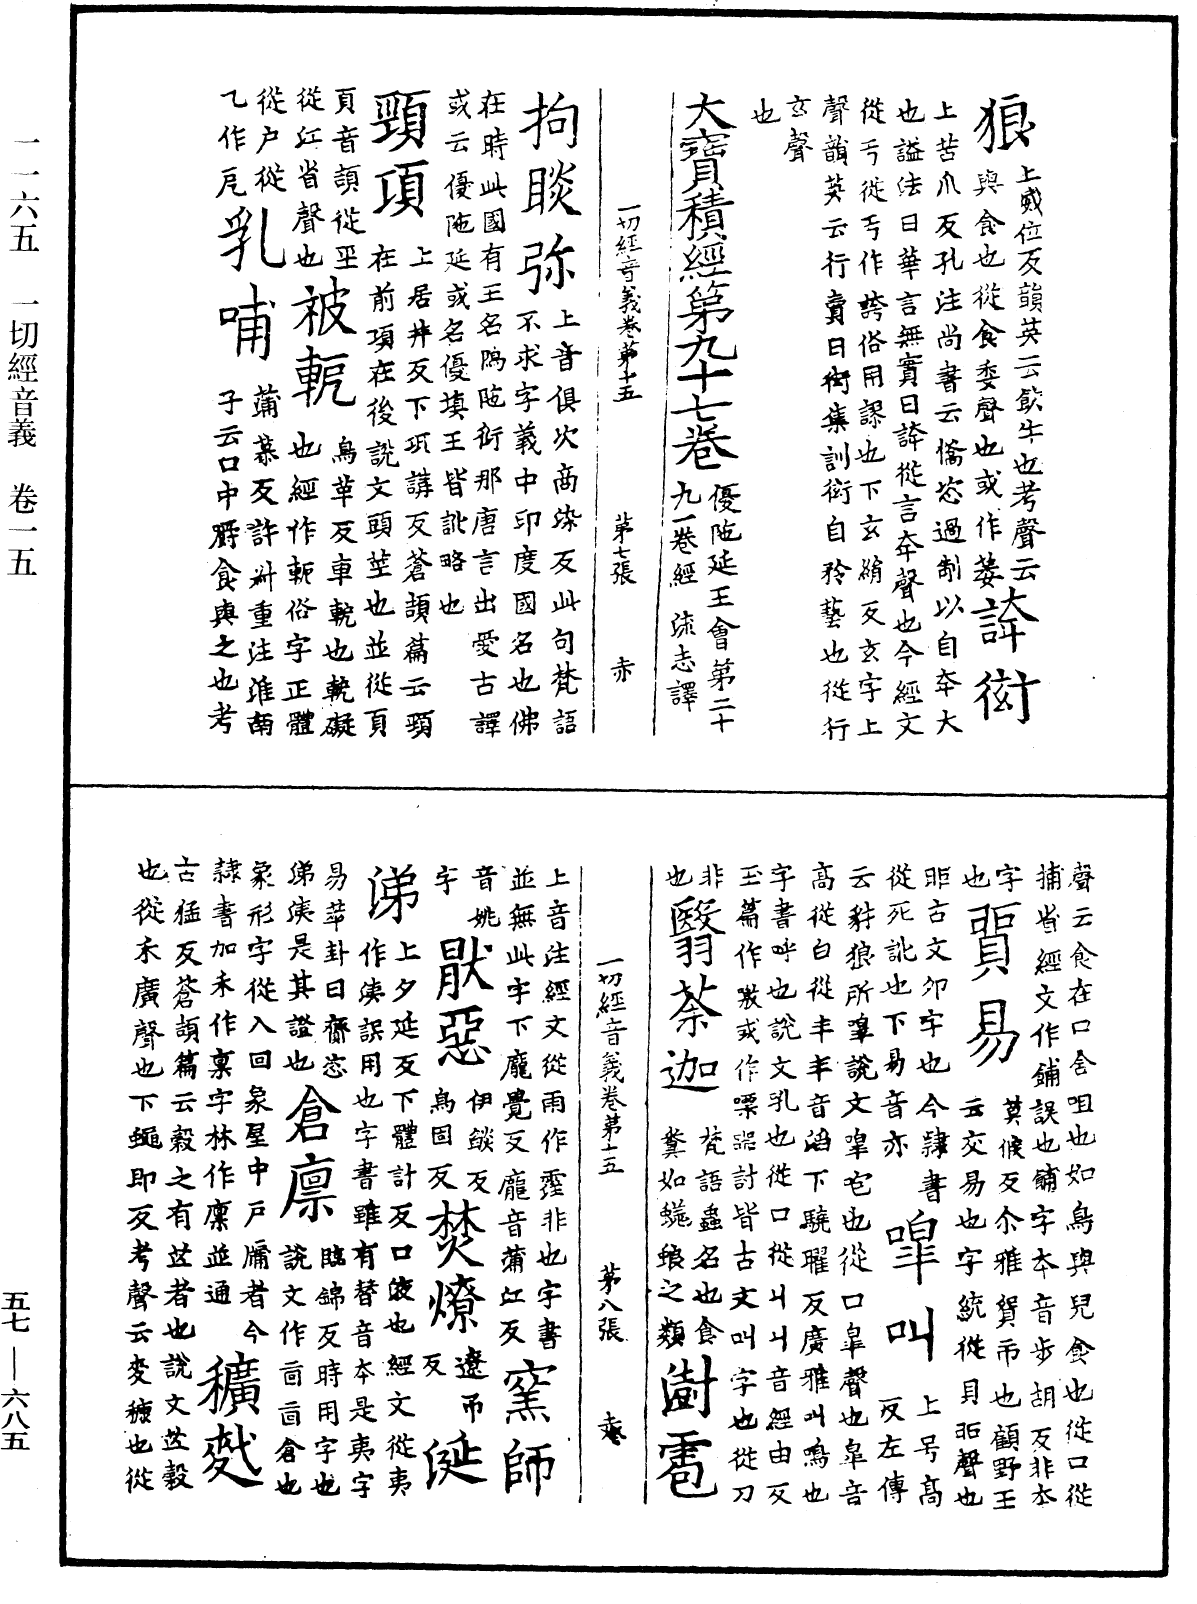 一一六五　一切經音義　卷一五
狼 上威位反韻英云飲牛也考聲云
與食也從食委聲也或作萎 誇衒
上苦瓜反孔注尚書云憍恣過制以自夲大
也謚法曰華言無實曰誇從言夸聲也今經文
從亐從丂作誇俗用謬也下玄絹反玄字上
聲韻英云行賣曰衒集訓衒自矜藝也從行
玄聲
也
大寶積經第九十七卷 優陁延王會第二十
九一卷經 流志譯
一切經音義卷第十五　第七張　赤
拘睒弥 上音俱次商染反此句梵語
不求字義中印度國名也佛
在時此國有王名隖陁衍那唐言出愛古譯
或云優陁延或名優填王皆訛略也
頸項 上居井反下項講反蒼頡篇云頸
在前項在後說文頭莖也並從頁
頁音頡從巠
從江省聲也 被軛 烏革反車軶也軶礙
也經作軛俗字正體
從戶從
乙作戹 乳哺 蒲慕反許叔重注淮南
子云口中嚼食與之也考
聲云食在口含咀也如鳥與兒食也從口從
捕省經文作鋪誤也餔字夲音步胡反非夲
字
也 貿易 莫候反尒雅貿市也顧野王
云交易也字統從貝丣聲也
丣古文卯字也今隸書
從死訛也下易音亦 嘷叫 上号高
反左傳
云豺狼所嘷說文嘷咆也從口皐聲也皐音
高從白從夲夲音滔下驍曜反廣雅叫鳴也
字書呼也說文乳也從口從丩丩音經由反
玉篇作噭或作嘂㗊討皆古文叫字也從刀
非
也 翳荼迦 梵語蟲名也食
糞如蜣蜋之類 澍雹
上音注經文從雨作霔非也字書
並無此字下龐覺反龐音蒲江反 窯師
音姚
字 猒惡 伊燄反
烏固反 焚燎 遼吊
反 涎
涕 上夕延反下體計反口液也經文從夷
作洟誤用也字書雖有替音夲是夷字
易萃卦曰齎恣
涕洟是其證也 倉廩 臨錦反時用字也
說文作㐭㐭倉也
象形字從入回象屋中戶牖者今
隸書加禾作稟字林作廩並通 穬麨
古猛反蒼頡篇云穀之有芒者也說文芒穀
也從禾廣聲也下蠅即反考聲云麥䅌也從
一切經音義卷第十五　第八張　赤
五七—六八五